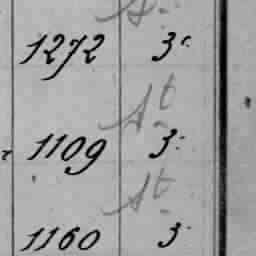 1272 3.
St
1109 3.
St
1160 3.